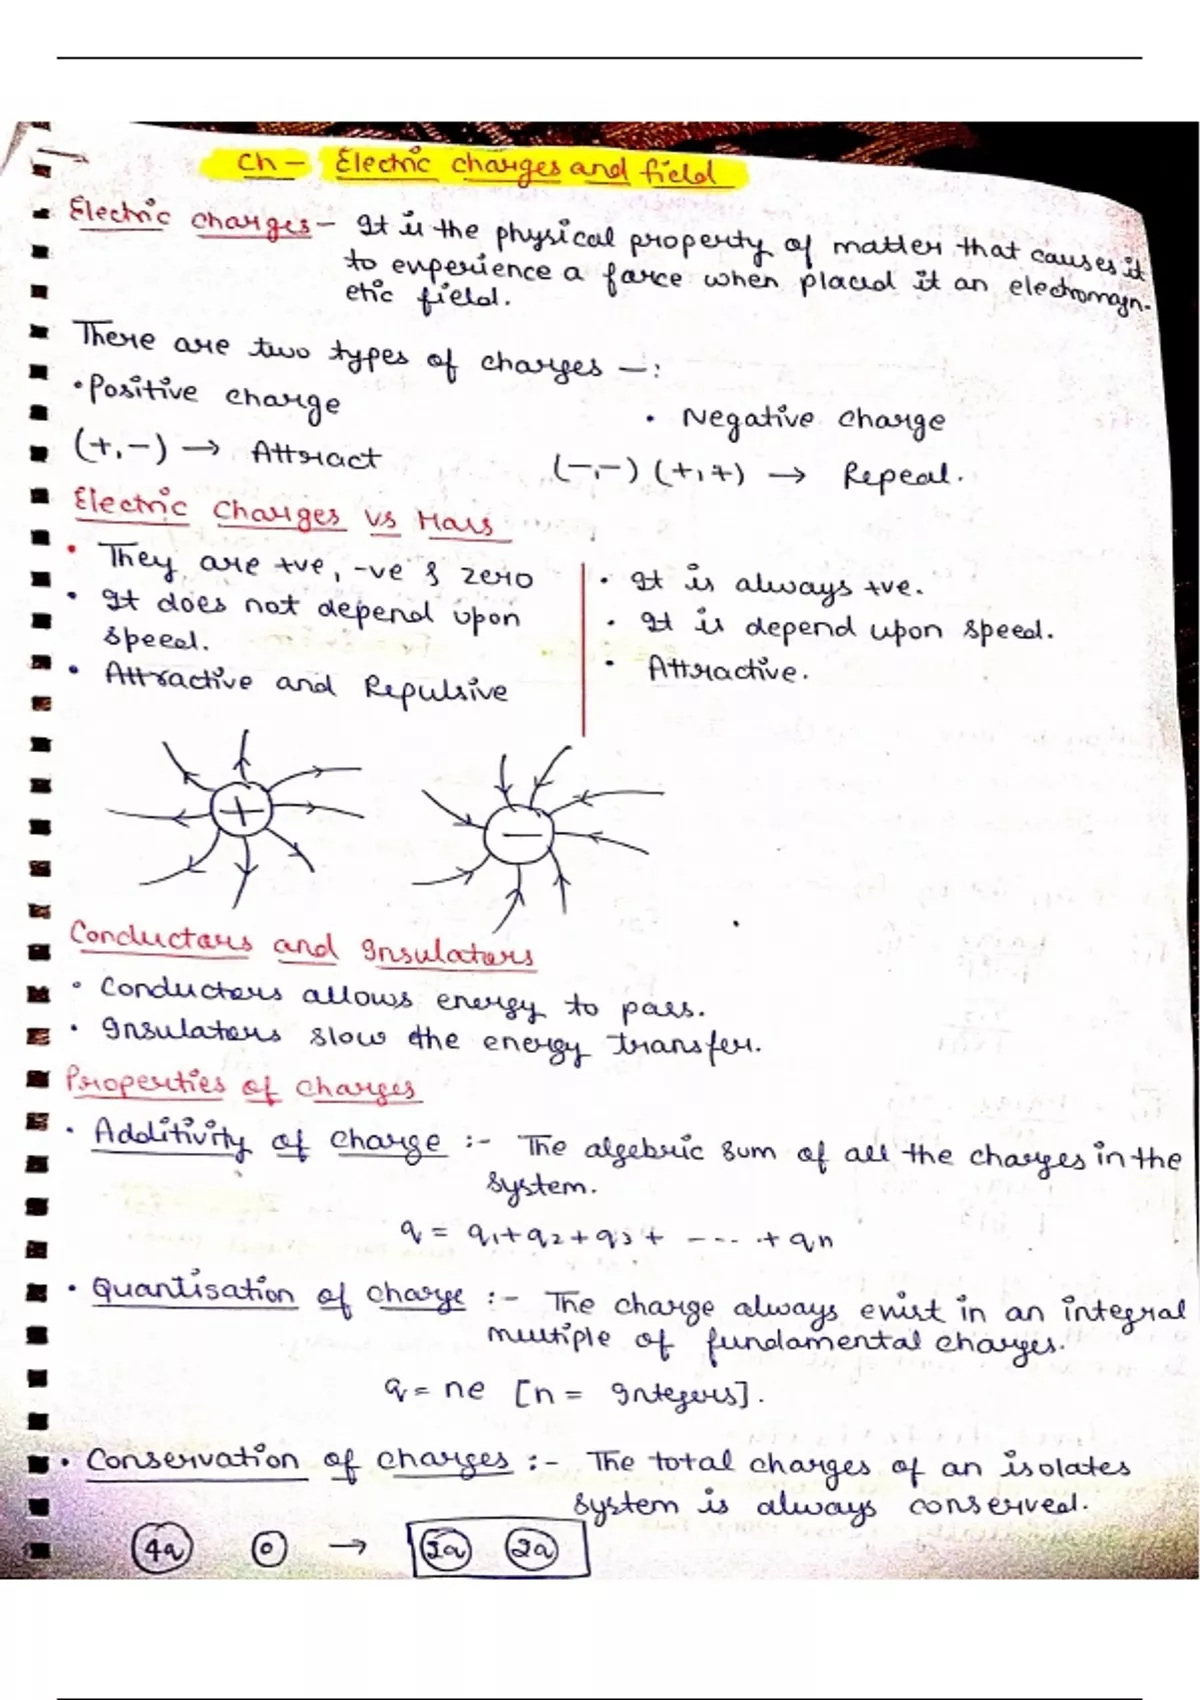 Ch - Electric charges and field
Electric charges - It is the physical property of matter that causes it
to experience a force when placed it an electromagn-
etic field.
There are two types of charges -:
• Positive charge • Negative charge
(+,-) → Attract (-,-) (+,+) → Repeal.
Electric Charges vs Mass
• They are +ve, -ve & zero • It is always +ve.
• It does not depend upon • It is depend upon speed.
speed.
• Attractive and Repulsive • Attractive.
+ −
Conductors and Insulators
• Conductors allows energy to pass.
• Insulators slow the energy transfer.
Properties of charges
• Additivity of charge :- The algebric sum of all the charges in the
system.
q = q1+q2+q3+ ---- .+ qn
• Quantisation of charge :- The charge always exist in an integral
multiple of fundamental charges.
q = ne [n = Integers].
• Conservation of charges :- The total charges of an isolates
system is always conserved.
4q 0 → 2q 2q